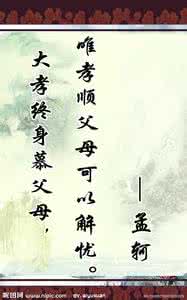 大孝终身慕父母，
唯孝顺父母可以解忧。
——孟轲
昵图网 www.nipic.com